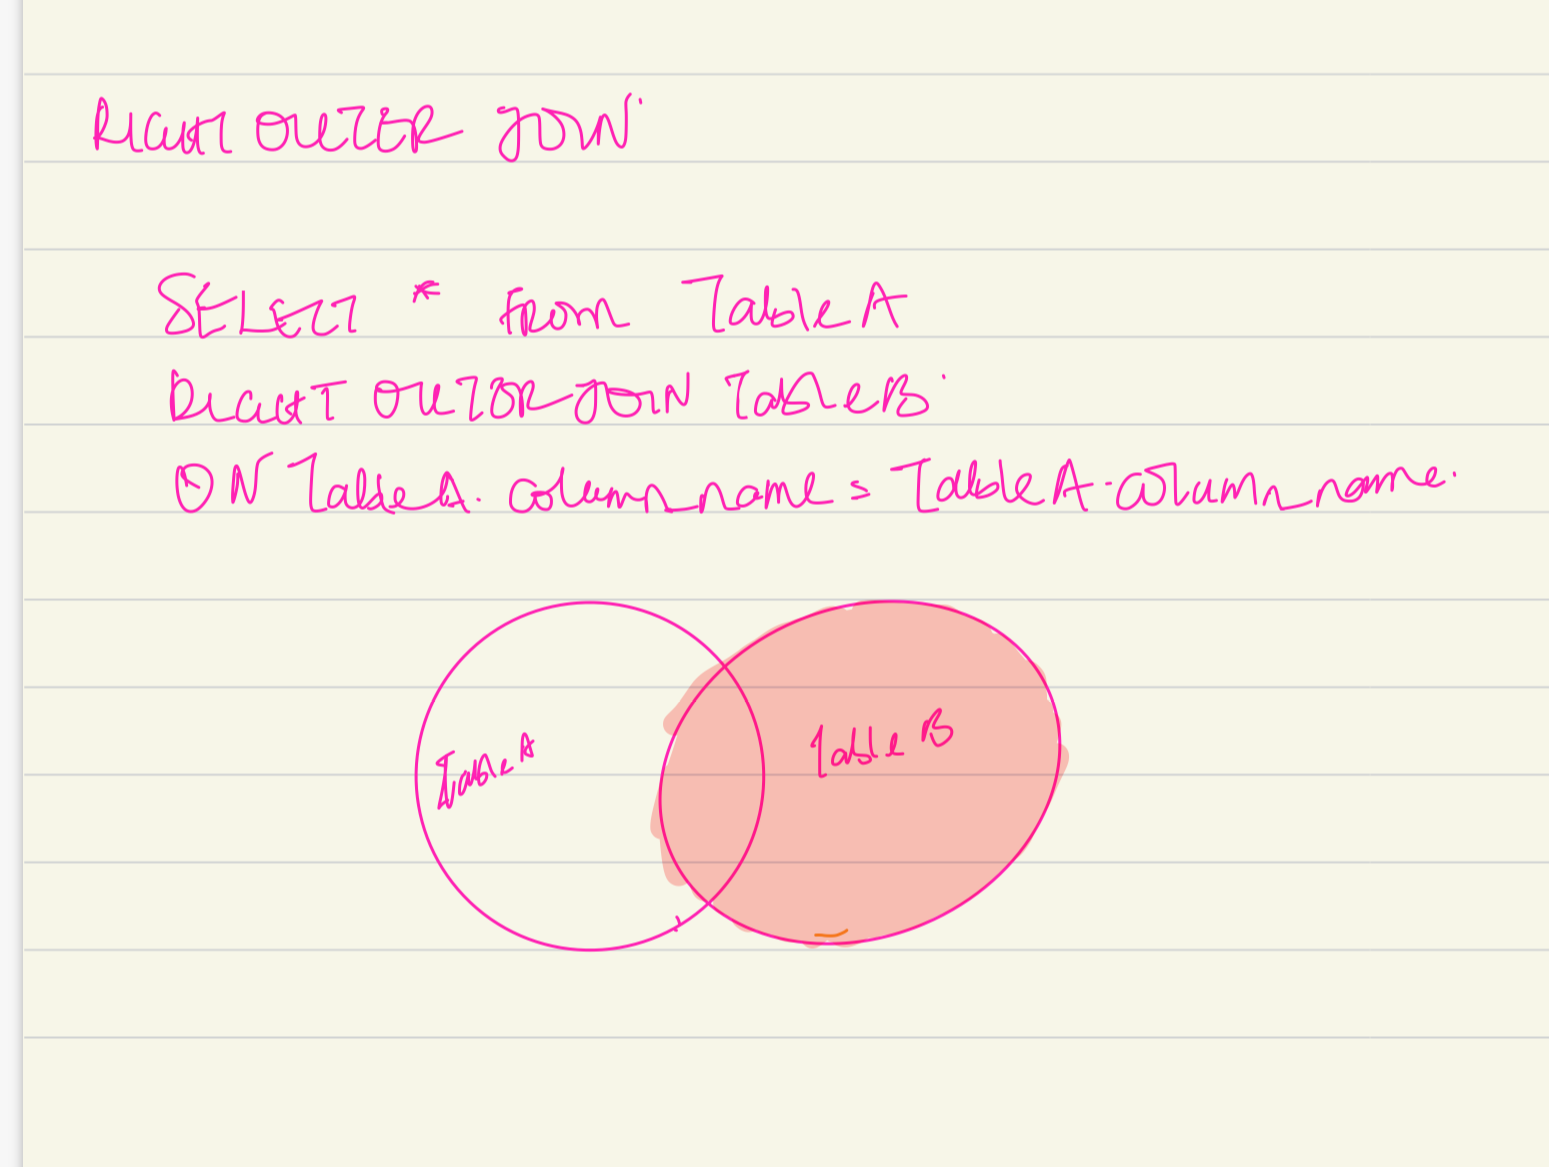 RIGHT OUTER JOIN
SELECT * FROM Table A
RIGHT OUTER JOIN Table B.
ON Table A. column_name = Table A.column_name.
Table A
Table B